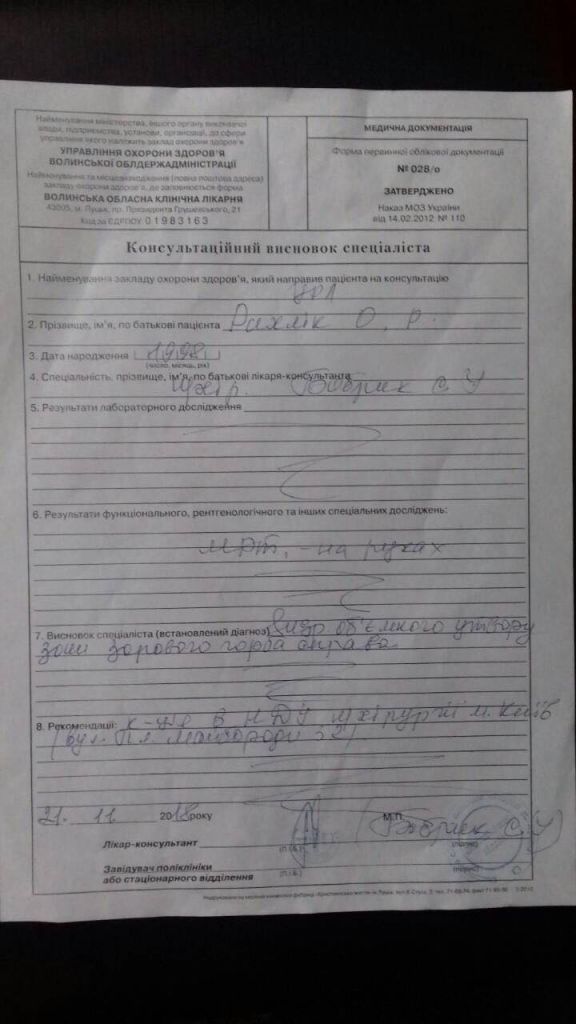 Найменування міністерства, іншого органу виконавчої
влади, підприємства, установи, організації, до сфери
управління якого належить заклад охорони здоров'я
УПРАВЛІННЯ ОХОРОНИ ЗДОРОВ'Я
ВОЛИНСЬКОЇ ОБЛДЕРЖАДМІНІСТРАЦІЇ
Найменування та місцезнаходження (повна поштова адреса)
закладу охорони здоров'я, де заповнюється форма
ВОЛИНСЬКА ОБЛАСНА КЛІНІЧНА ЛІКАРНЯ
43005, м. Луцьк, пр. Президента Грушевського, 21
Код за ЄДРПОУ 01983163
МЕДИЧНА ДОКУМЕНТАЦІЯ
Форма первинної облікової документації
№ 028/о
ЗАТВЕРДЖЕНО
Наказ МОЗ України
від 14.02.2012 № 110
Консультаційний висновок спеціаліста
1. Найменування закладу охорони здоров'я, який направив пацієнта на консультацію
2. Прізвище, ім'я, по батькові пацієнта О. Р.
3. Дата народження 1998
(число, місяць, рік)
4. Спеціальність, прізвище, ім'я, по батькові лікаря-консультанта
Н/хір. Бобрик С У
5. Результати лабораторного дослідження
6. Результати функціонального, рентгенологічного та інших спеціальних досліджень:
МРТ, - на руках
7. Висновок спеціаліста (встановлений діагноз) об'ємного утвору
зони зорового горба справа
8. Рекомендації: к-ція в НДУ н/хірургії м. Київ
(вул. Пл. Майбороди 32)
21. 11 2018 року
М.П.
Лікар-консультант Бобрик С У
(П.І.Б.) (підпис)
Завідувач поліклініки
або стаціонарного відділення
(П.І.Б.) (підпис)